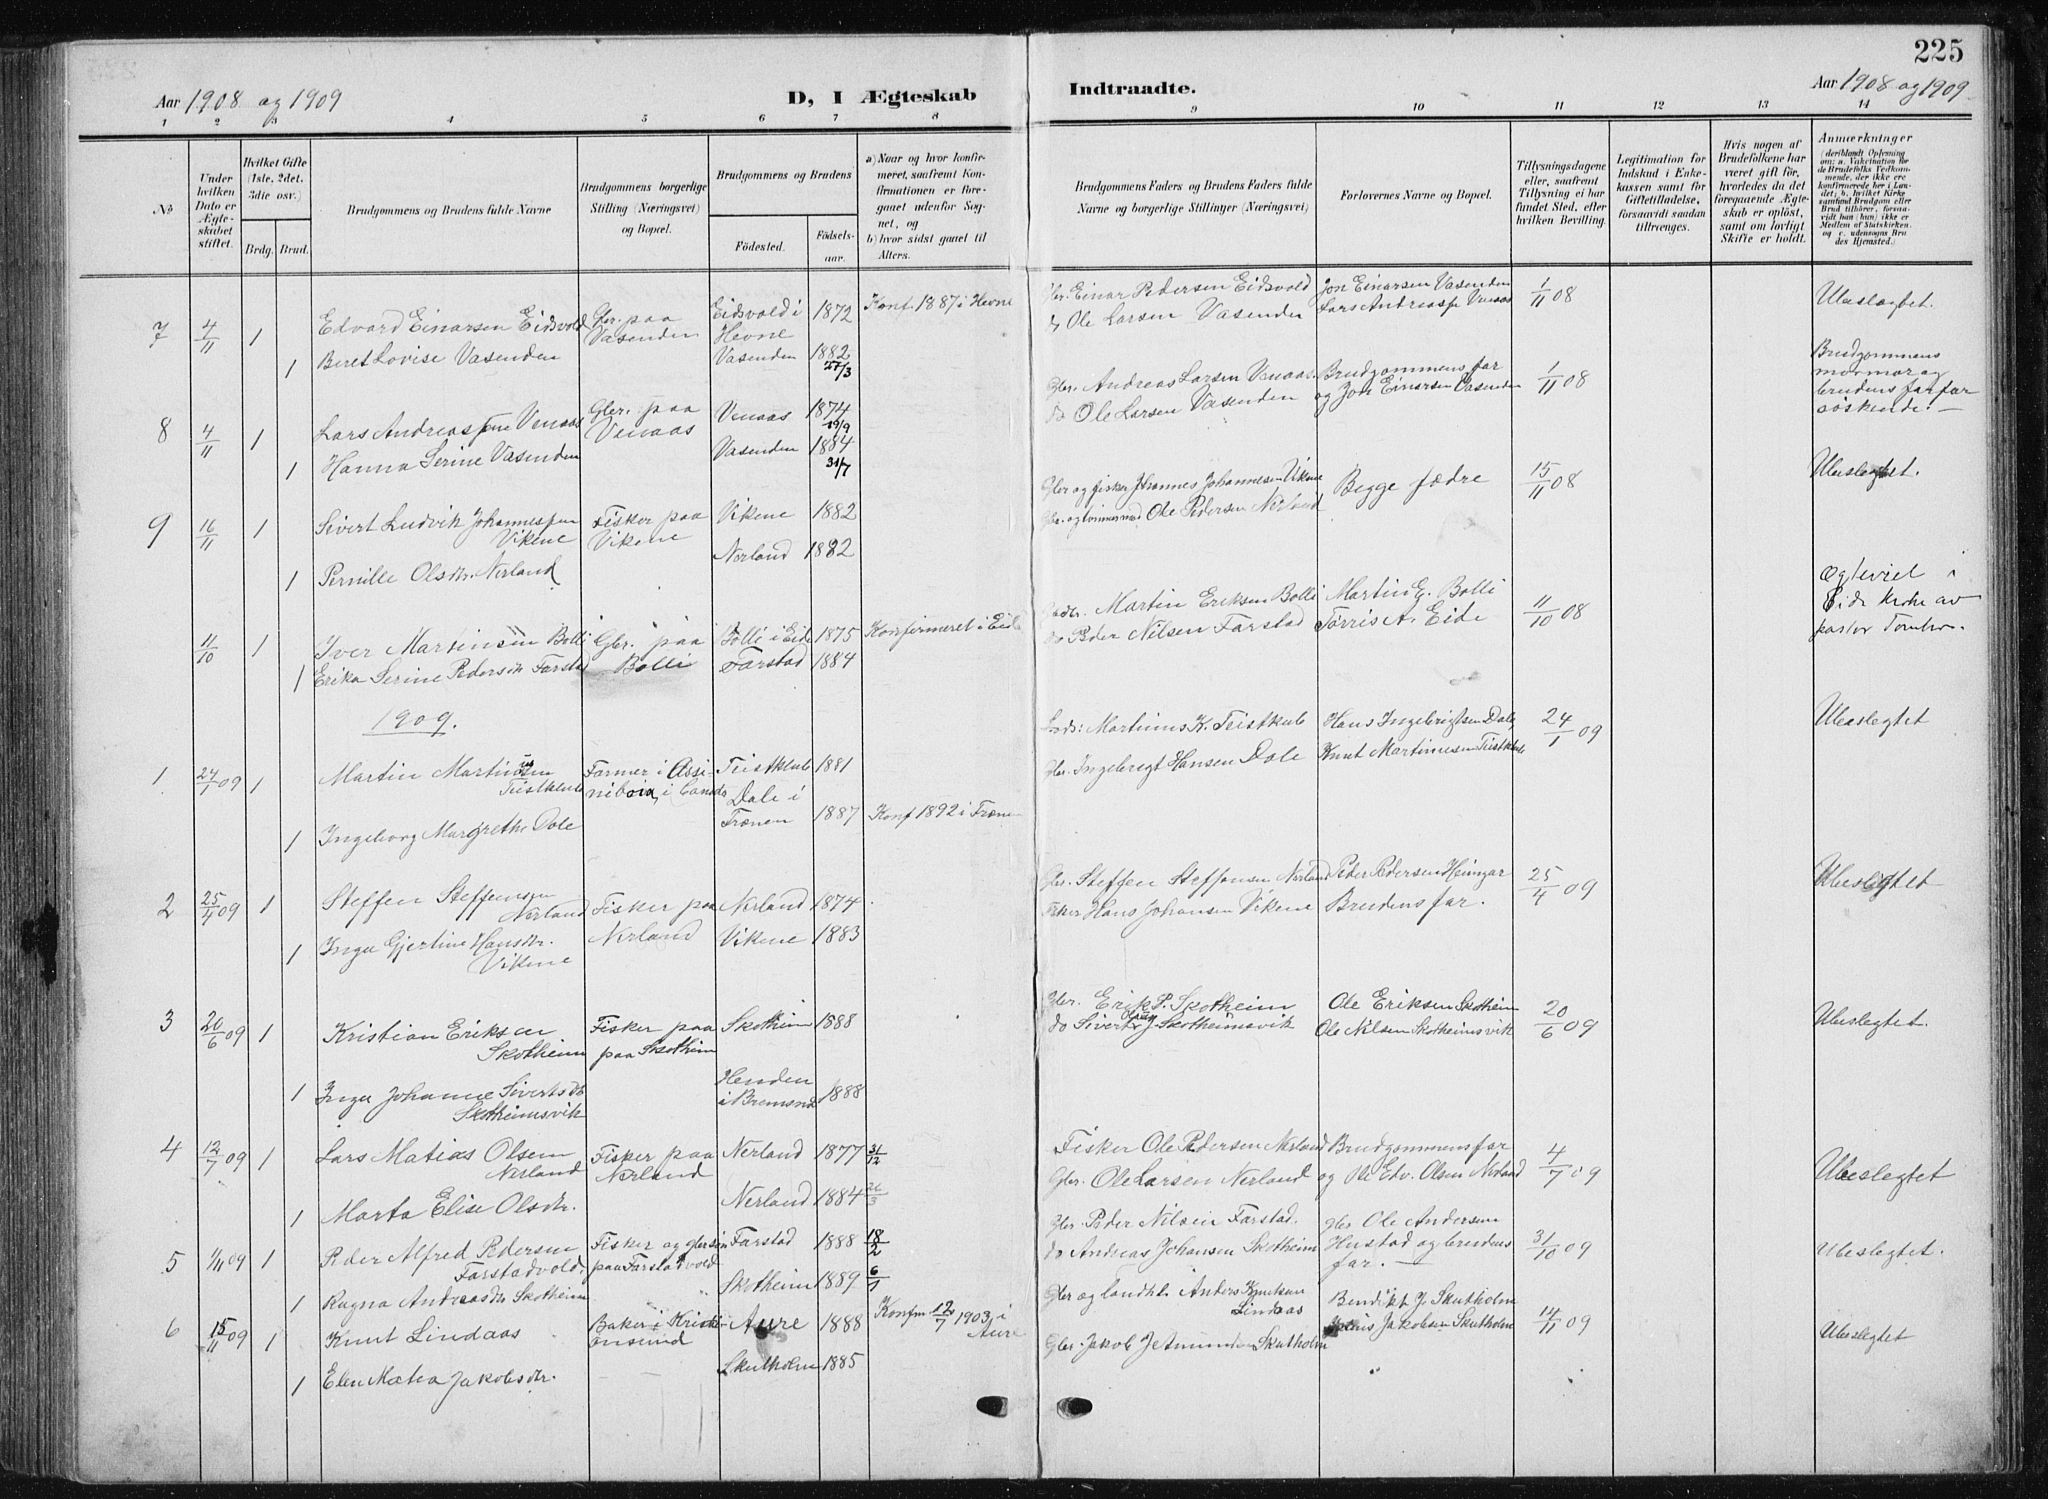 225
Aar 1908 og 1909
D, I Ægteskab
Indtraadte.
Aar 1908 og 1909
1 2 3 4 5 6 7 8 9 10 11 12 13 14
No
Under hvilken Dato er Ægteskabet stiftet.
Hvilket Gifte (1ste, 2det, 3die osv.)
Brdg. Brud.
Brudgommens og Brudens fulde Navne
Brudgommens borgerlige Stilling (Næringsvei) og Bopæl.
Brudgommens og Brudens
Fødested.
Fødselsaar.
a) Naar og hvor konfirmeret, saafremt Konfirmationen er foregaaet udenfor Sognet, og
b) hvor sidst gaaet til Alters.
Brudgommens Faders og Brudens Faders fulde Navne og borgerlige Stillinger (Næringsvei)
Forlovernes Navne og Bopæl.
Tillysningsdagene eller, saafremt Tillysning ei har fundet Sted, efter hvilken Bevilling.
Legitimation for Indskud i Enkekassen samt for Giftetilladelse, forsaavidt saadan tiltrænges.
Hvis nogen af Brudefolkene har været gift før, hvorledes da det foregaaende Ægteskab er opløst, samt om lovligt Skifte er holdt.
Anmærkninger
(deriblandt Oplysning om: a. Vakcination for de Brudefolks Vedkommende, der ikke ere konfirmerede her i Landet, b. hvilket Kirkesamfund Brudgom eller Brud tilhører, forsaavidt han (hun) ikke er Medlem af Statskirken, og c. udensogns Brudes Hjemsted.)
7 4/11 1 Edvard Einarsen Eidsvold Gbr. paa Vasenden Eidsvold i Hevne 1872 Konf. 1887 i Hevne
Gbr. Einar Pedersen Eidsvold Jon Einarsen Vasenden 1/11 08 Ubeslægtet.
1 Beret Lovise Vasenden Vasenden 1882 27/3
do Ole Larsen Vasenden Lars Andreass. Venaas
8 4/11 1 Lars Andreassen Venaas Gbr. paa Venaas Venaas 1874 19/9
Gbr. Andreas Larsen Venaas Brudgommens far 1/11 08 Brudgommens mormor og brudens farfar søskende. —
1 Hanna Serine Vasenden Vasenden 1884 31/7
do Ole Larsen Vasenden og Jon Einarsen Vasenden
9 16/11 1 Sivert Ludvik Johannessen Vikene Fisker paa Vikene Vikene 1882
Gbr og fisker Johannes Johannesen Vikene Begge fædre 15/11 08 Ubeslegtet.
1 Pernille Olsdtr. Nerland Nerland 1882
Gbr. og tømmermand Ole Pedersen Nerland
11/10 1 Iver Martinsen Bolli Gbr. paa Bolli Bolli i Eide 1875 Konfirmeret i Eide
Martin Eriksen Bolli Martin E. Bolli 11/10 08 Ogteviet i Eide kirke av pastor
1 Erika Serine Pedersdtr Farstad Farstad 1884
do Peder Nilsen Farstad Torris A. Eide
1909.
1 24/1 09 1 Martin Martinusen Teistklub Farmer i Assiniboia, i Canada Teistklub 1881
Martinus K. Teistklub Hans Ingebrigtsen Dale 24/1 09 Ubeslegtet
1 Ingeborg Margrethe Dale Dale i Frænen 1887 Konf 1892 i Frænen
Gbr. Ingebrigt Hansen Dale Knut Martinusen Teistklub
2 25/4 09 1 Steffen Steffensen Nerland Fisker paa Nerland Nerland 1874
Gbr. Steffen Steffensen Nerland Peder Pedersen 25/4 09 Ubeslegtet
1 Inga Gjertine Hansdtr. Vikene Vikene 1883
Fisker Hans Johansen Vikene Brudens far.
3 20/6 09 1 Kristian Eriksen Skotheim Fisker paa paa Skotheim Skotheim 1888
Gbr. Erik P. Skotheim Ole Eriksen Skotheim 20/6 09 Ubeslegtet.
1 Inga Johanne Sivertsdtr Skotheimsvik Henden i Bremsnes 1888
do Sivert J. Skotheimsvik Ole Nilsen Skotheimsvik
4 12/7 09 1 Lars Matias Olsen Nerland Fisker paa Nerland Nerland 1877 31/12
Fisker Ole Pedersen Nerland Brudgommens far 4/7 09 Ubeslegtet
1 Marta Elise Olsdtr. Nerland 1884 26/3
Gbr. Ole Larsen Nerland og Ole Edv. Olsen Nerland
5 1/11 09 1 Peder Alfred Pedersen Farstadvold. Fisker og gbr.søn paa Farstadvold Farstad 1888 18/2
Gbr. Peder Nilsen Farstad. gbr Ole Andersen Hustad og brudens far. — 31/10 09 Ubeslegtet.
1 Ragna Andreasdtr Skotheim Skotheim 1889 6/1
do Andreas Johansen Skotheim
6 15/11 09 1 Knut Lindaas Baker i Kristiansund Aure 1888 Konfm 12/7 1903 i Aure
Gbr og landh. Anders Knutsen Lindaas Bendikt J. Skutholm 14/11 09 Ubeslegtet
1 Elen Marta Jakobsdtr. Skutholm 1885
Gbr. Jakob J. Amundsen Skutholm Jakobsen Skutholm